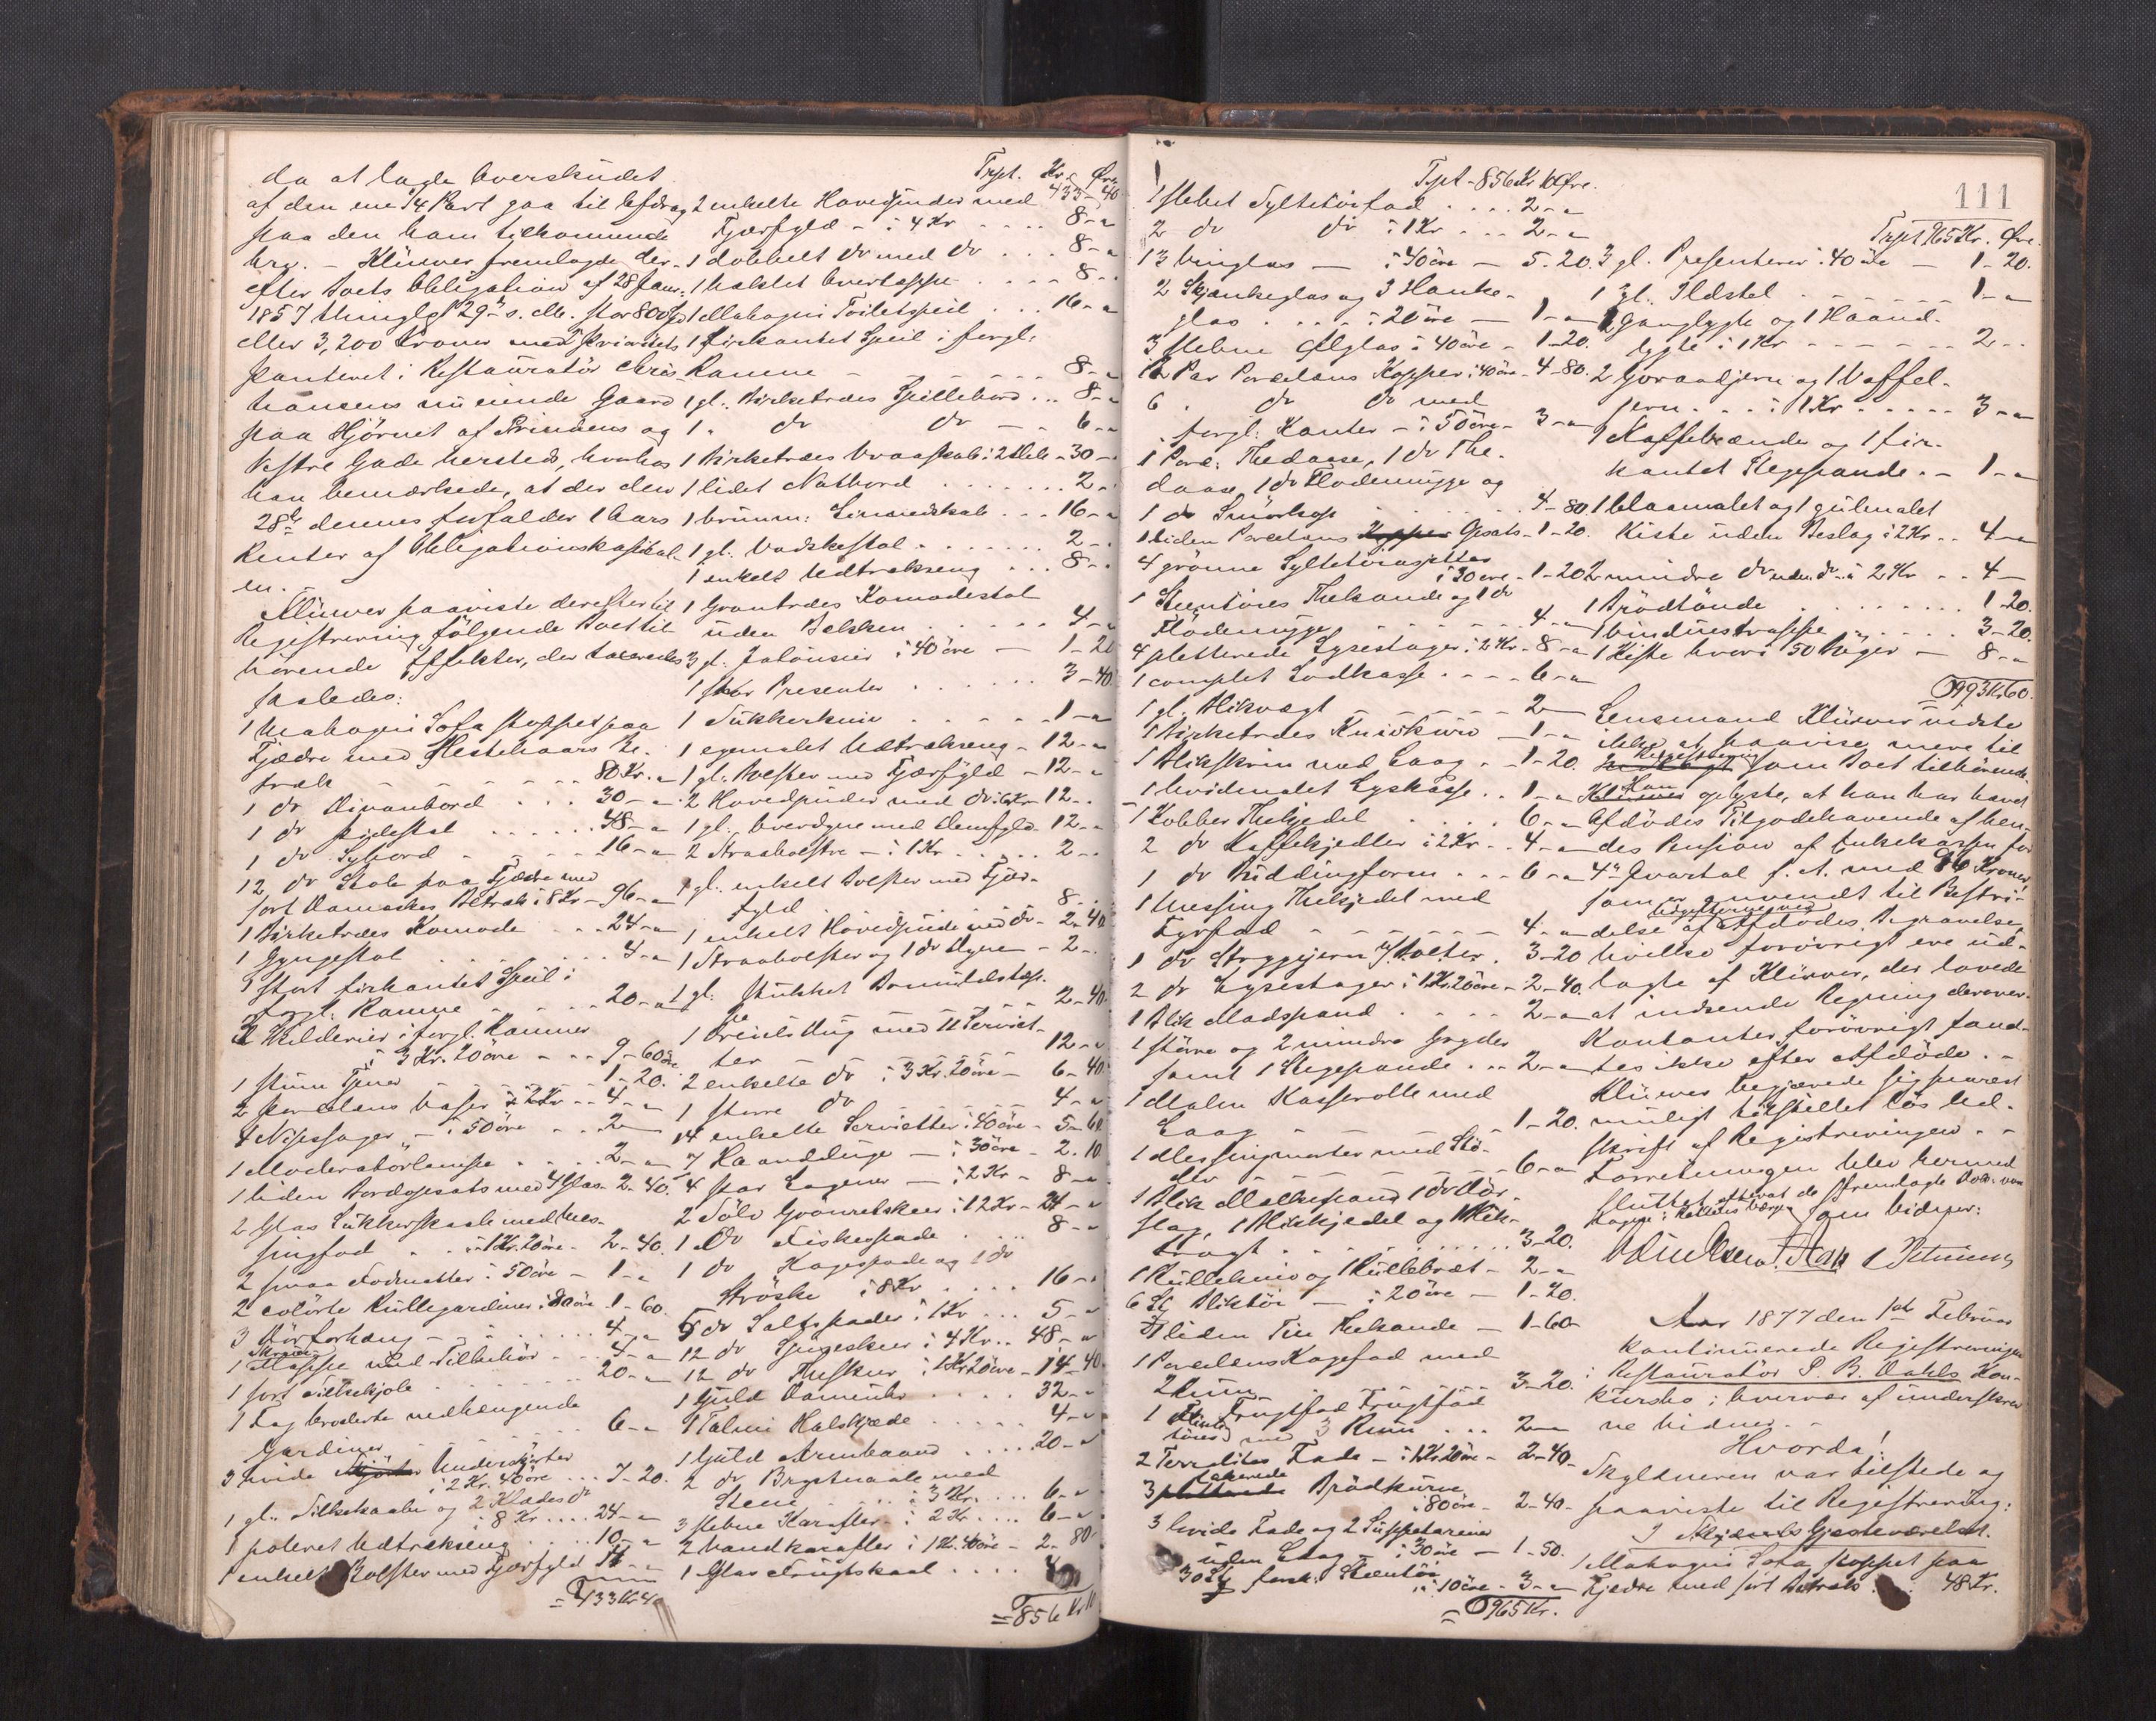 da at lade Overskudet
af den ene 1/4 Part gaa til Afdrag
paa den ham tilkommende
Arv. - Klüwer fremlagde der-
efter Boets Obligation af 28 Janr.
1857 thinglst 29de s. M. stor 800 Spd
eller 3,200 Kroner med Prioritets
panteret i Restauratör Chris-
hansens nu eiende Gaard
paa Hjörnet af Prindsens og
Vestre Gade hersteds, hvorhos
han bemærkede, at der den
28de dennes forfalder 1 Aars
Renter af Obligationskapital-
en.
Klüwer paaviste derefter til
Registrering fölgende Boet til-
hörende Effekter, der taxeredes
saaledes:
1 Mahogni Sofa stoppet paa
Fjædre med Hestehaars Be-
træk - - - 80 Kr. "
1 do Divanbord . . . 30 - "
1 do Pidestal . . . 48 - "
1 do Sybord - - - 16 - "
12 do Stole paa Fjædre med
sort Damaskes Betræk à 8 Kr - 96 - "
1 Birketræes Komode - - 24 - "
1 Gyngestol . . . 4 - "
1 stort firkantet Speil i
forgl. Ramme - - - 20 - "
3 Skilderier i forgl. Rammer
à 3 Kr. 20 öre - - 9 - 60 öre
1 stum Tjener - - - 1 - 20.
2 porcelæns Vaser à 2 Kr - - 4 - "
4 Nipssager - à 50 öre - - 2 -
1 Moderatörlampe - - - 2 - "
1 liden Bordopsats med 4 Glas - 2 - 40.
2 Glas Sukkerskaale med Mes-
singfod - - à 1 Kr. 20 öre - 2 - 40.
2 smaa Fodmatter à 50 öre - 1 - "
2 colörte Rullegardiner à 80 öre 1 - 60.
3 Dörforhæng - - . . . 4 - "
1 Mappe med Tilbehör - - - 4 - "
1 sort Silkekjole . . . 20 - "
1 Fag broderte nedhængende
Gardiner - - - 6 - "
3 hvide Underskjörter
à 2 Kr. 40 öre . . . 7 - 20.
1 gl. Silkekaabe og 2 Klædes do
à 8 Kr . . . 24 - "
1 poleret Udtrækseng . . . 10 - "
1 enkelt Bolster med Fjærfyld
= 433 Kr 40
Trpt. Kr. Öre
433 - 40
2 enkelte Hovedpuder med
Fjærfyld - à 4 Kr . . . 8 - "
1 dobbelt do med do . . . 8 - "
1 hæklet Overtæppe - - - 8 - "
1 Mahogni Toiletspeil . . . 16 - "
1 firkantet Speil i forgl.
Ramme - - - 8 - "
1 gl. Birketræes Spillebord . . . 8 - "
1 " do do - - 6 - "
1 Birketræes Vraaskab i 2 Dele - 30 -
1 lidet Natbord . . . 2 - "
1 brunm: Linnedskab . . . 16 - "
1 gl. Vadskestol . . . 2 - "
1 enkelt Udtrækseng . . . 8 - "
1 Grantræes Komodestol
uden Bækken . . . 4 - "
3 gl. Jalousier à 40 öre - 1 - 20
1 stor Presenter . . . 3 - 40
1 Sukkerkniv . . . 1 - "
1 egemalet Udtrækseng - 12 - "
1 gl. Bolster med Fjærfyld - 12 - "
2 Hovedpuder med do à 6 Kr - 12 - "
1 gl. Overdyne med Dunfyld - 12 - "
2 Straabolstre - à 1 Kr . . . 2 - "
1 gl. enkelt Bolster med Fjær-
fyld . . . 8 -
1 enkelt Hovedpude med do - 2 - 40
1 Straabolster og 1 do Dyne - 2 -
1 gl. stukket Bomuldstæp-
pe - - - 2 - 40.
1 Dreiels Dug med 11 Serviet-
ter - - - 12 - "
2 enkelte do à 3 Kr. 20 öre - 6 - 40
1 större do - - - 4 - "
14 enkelte Servietter à 40 öre - 5 - 60
7 Haandduge - à 30 öre - 2. 10
4 par Lagener - à 2 Kr - 8 - "
2 Sölv Grönretskeer à 12 Kr - 24 - "
1 do Fiskespade . . . 8 - "
1 do Kagespade og 1 do
Ströske à 8 Kr . . . 16 - "
5 do Saltspader à 1 Kr . . . 5 - "
12 do Spiseskeer à 4 Kr . . . 48 - "
12 do Theskeer à 1 Kr 20 öre - 14 - 40
1 Guld Dameuhr . . . 32 - "
1 Talmi Halskjæde . . . 4 - "
1 Guld Armbaand . . . 20 - "
2 do Brystnaale med
Stene - - à 3 Kr. . . . 6 - "
3 slebne Karafler à 2 Kr . . . 6 - "
2 Vandkarafler à 1 Kr. 40 öre - 2 - 80
1 Glas Frugtskaal . . .
= 856 Kr 10
111
Trpt - 856 Kr 10 Öre.
1 slebet Syltetöisfad . . . 2 - "
2 do do à 1 Kr . . . 2 - "
13 Vinglas - à 40 öre - 5 - 20.
2 Skjænkeglas og 3 Hanke-
glas . . . à 20 öre - 1 - "
3 slebne Ölglas à 40 öre - 1 - 20.
12 Par Porcelæns Kopper à 40 öre - 4 - 80.
6 do do med
forgl. Kanter - à 50 öre - 3 - "
1 Porc: Thedaase, 1 do The-
daase, 1 do Flödemugge og
1 do Smörkop . . . 4 - 80
1 liden Porcelæns Opsats - 1 - 20.
4 grönne Syltetöiasjetter
à 30 öre - 1 - 20
1 Stentöies Thekande og 1 do
Flödemugge . . . 4 - "
4 pletterede Lysestager à 2 Kr - 8 - "
1 complet Lodkasse - - - 6 - "
1 gl. Blikvægt - - - 2 -
1 Birketræes Knivkurv - 1 - "
1 Blikskrin med Laag - - 1 - 20.
1 hvidmalet Lyskasse . . 1 - "
1 Kobber Thekjedel . . . 6 - "
2 do Kaffekjedler à 2 Kr . . 4 - "
1 do Buddingform . . . 6 - "
1 Messing Thekjedel med
Fyrfad - - - 4 - "
1 do Strygejern m/ Bolter . 3 - 20
2 do Lysestager à 1 Kr. 20 öre - 2 - 40.
1 Blik Madspand . . . 2 - "
1 större og 2 mindre Gryder
samt 1 Stegepande . . . 2 - "
1 Malm Kasserolle med
Laag - - - 1 - 20.
1 Messingmorter med Stö-
der - - - 6 - "
1 Blik Melkespand 1 do Dör-
slag, 1 Blikkjedel og 1 Blik-
tragt . . . 3 - 20.
1 Rullekniv og 1 Rullebræt - 2 - "
6 St Bliktöi - à 20 öre - 1 - 20.
1 liden Tin Thekande - 1 - 60
1 Porcelæns Kagefad med
2 Rum - - - 3 - 20.
1 Frugtfad
med 3 Rum . . . 2 - "
2 Terralites Fade - à 1 Kr 20 öre - 2 - 40.
3 lakerede Brödkurve
à 80 öre - 2 - 40 -
3 hvide Fade og 2 Suppeteriner
uden Laag - à 30 öre - 1 - 50.
30 St forsk. Stentöi
à 10 öre - 3 - "
= 965 Kr.
Trpt 965 Kr. Öre.
3 gl. Presenterer à 40 öre - 1 - 20.
1 gl. Ildstel . . . 1 - "
1 Ganglygte og 1 Haand-
lygte à 1 Kr - - - 2 - -
2 Goraadjern og 1 Vaffel-
jern . . . à 1 Kr . . . 3 - "
1 Kaffebrænder og 1 fir-
kantet Stegepande - - 1 - "
1 blaamalet og 1 gulmalet
Kiste uden Beslag à 2 Kr . . 4 - "
2 mindre do uden do à 2 Kr - - 4 -
1 Brödtönde . . . 1 - 20.
1 Vinduestrappe . . . 3 - 20.
1 Kiste hvori 50 Böger - 8 - "
993 Kr 60.
Lensmand Klüwer vidste
ikke at paavise mere til
Registrering som Boet tilhörende.
Han oplyste, at han har hævet
Afdödes Tilgodehavende af hen-
des Pension af Enkekassen for
4de Qvartal f. A. med 86 Kroner,
som er anvendt til Bestri-
delse af Udgifterne ved Afdödes Begravelse,
hvilke forövrigt ere ud-
lagte af Klüwer, der lovede
at indsende Regning derover.
Kontanter forövrigt fand-
tes ikke efter Afdöde. -
Klüwer begjærede sig snarest
muligt tilstillet lös Ud-
skrift af Registreringen. - -
Forretningen blev hermed
sluttet, efterat de fremlagte Dok. var
tagne i Rettens Værge
som Vidner:
Aar 1877 den 1ste Februar
kontinuerede Registreringen
i Restauratör P. B. Dahls Kon-
kursbo i Overvær af underskrev-
ne Vidner. -
Hvorda!
Skyldneren var tilstede og
paaviste til Registrering:
I Gjesteværelset.
1 Mahogni Sofa stoppet paa
Fjedre med sort Betræk . . . 48 Kr.